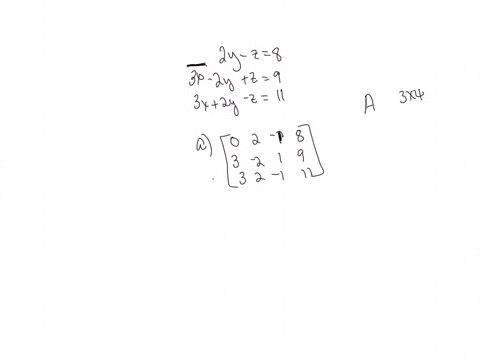 — 2y - z = 8
3x - 2y + z = 9
3x + 2y - z = 11
A 3x4
a) [ 0 2 -1 8
3 -2 1 9
3 2 -1 11 ]